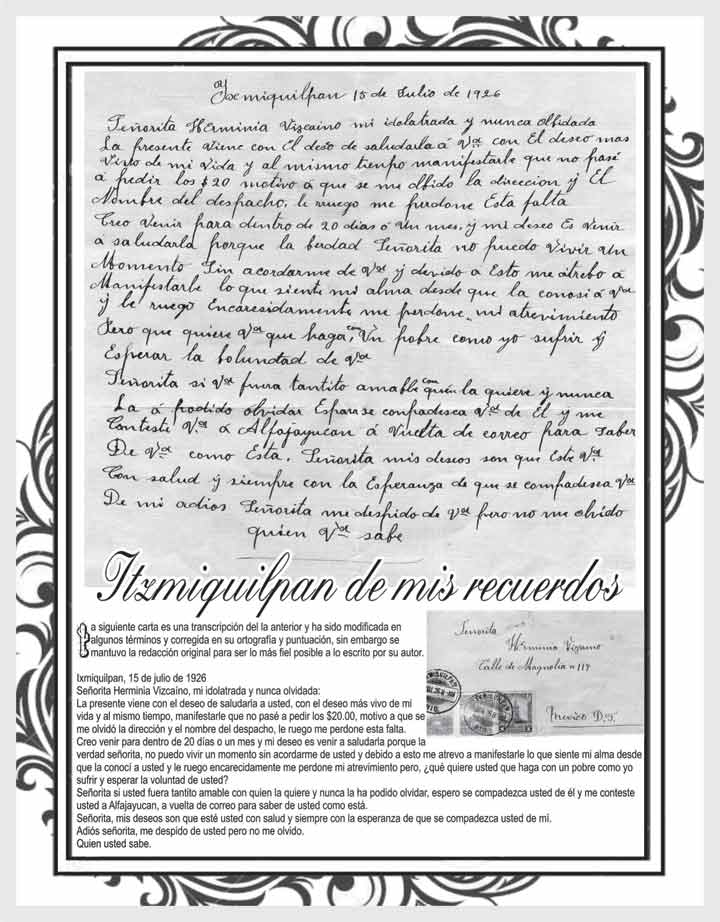 Ixmiquilpan 15 de Julio de 1926
Señorita Herminia Vizcaino mi idolatrada y nunca olbidada
La presente viene con El deseo de saludarla á Vd con El deseo mas
Vivo de mi Vida y al mismo tienpo manifestarle que no pasé
á pedir los $20 motivo á que se me olbido la direccion y El
Nombre del despacho, le ruego me perdone Esta falta
Creo Venir para dentro de 20 dias ó Un mes, y mi deseo Es Venir
a saludarla porque la berdad Señorita no puedo Vivir Un
Momento Sin acordarme de Vd y devido a Esto me átrebo á
Manifestarle lo que siente mi alma desde que la conosi á Vd
y le ruego Encaresidamente me perdone mi atrevimiento
Pero que quiere Vd que haga, con Un pobre como yo sufrir y
Esperar la bolundad de Vd
Señorita si Vd fuera tantito amable con quien la quiere y nunca
La á podido olvidar Esparase compadesca Vd de El y me
Conteste Vd á Alfajayucan á Vuelta de correo para Saber
De Vd como Esta. Señorita mis deseos son que Este Vd
Con salud y siempre con la Esperanza de que se compadesca Vd
De mi adios Señorita me despido de Vd pero no me olvido
quien Vd sabe
Itzmiquilpan de mis recuerdos
La siguiente carta es una transcripción del la anterior y ha sido modificada en
algunos términos y corregida en su ortografía y puntuación, sin embargo se
mantuvo la redacción original para ser lo más fiel posible a lo escrito por su autor.
Ixmiquilpan, 15 de julio de 1926
Señorita Herminia Vizcaíno, mi idolatrada y nunca olvidada:
La presente viene con el deseo de saludarla a usted, con el deseo más vivo de mi
vida y al mismo tiempo, manifestarle que no pasé a pedir los $20.00, motivo a que se
me olvidó la dirección y el nombre del despacho, le ruego me perdone esta falta.
Creo venir para dentro de 20 días o un mes y mi deseo es venir a saludarla porque la
verdad señorita, no puedo vivir un momento sin acordarme de usted y debido a esto me atrevo a manifestarle lo que siente mi alma desde
que la conocí a usted y le ruego encarecidamente me perdone mi atrevimiento pero, ¿qué quiere usted que haga con un pobre como yo
sufrir y esperar la voluntad de usted?
Señorita si usted fuera tantito amable con quien la quiere y nunca la ha podido olvidar, espero se compadezca usted de él y me conteste
usted a Alfajayucan, a vuelta de correo para saber de usted como está.
Señorita, mis deseos son que esté usted con salud y siempre con la esperanza de que se compadezca usted de mí.
Adiós señorita, me despido de usted pero no me olvido.
Quien usted sabe.
Señorita
Herminia Vizcaino
Calle de Magnolia n 119
Mexico D.F.